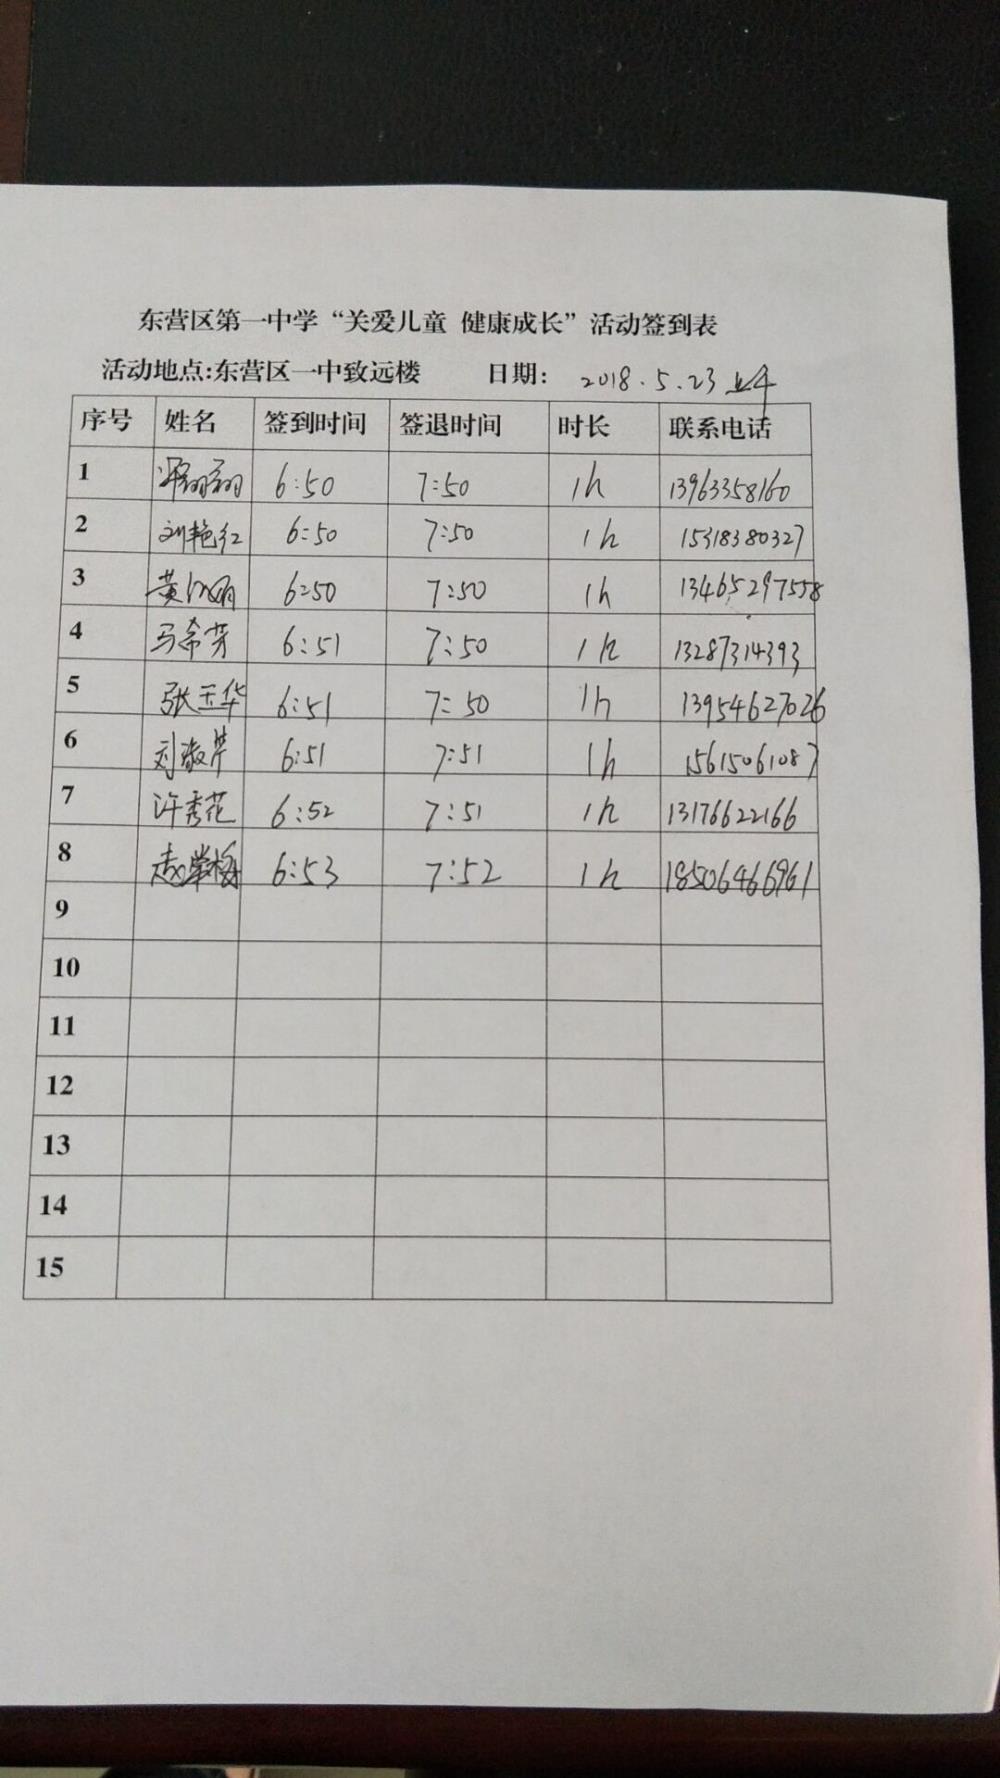 东营区第一中学“关爱儿童 健康成长”活动签到表
活动地点:东营区一中致远楼 日期: 2018.5.23 上午
序号 姓名 签到时间 签退时间 时长 联系电话
1 6:50 7:50 1h 13963358160
2 刘艳红 6:50 7:50 1h 15318380327
3 黄 丽 6:50 7:50 1h 13465297558
4 马希芳 6:51 7:50 1h 13287314393
5 张玉华 6:51 7:50 1h 13954627026
6 刘敬芹 6:51 7:51 1h 15615061087
7 许秀花 6:52 7:51 1h 13176622166
8 6:53 7:52 1h 18506466961
9
10
11
12
13
14
15